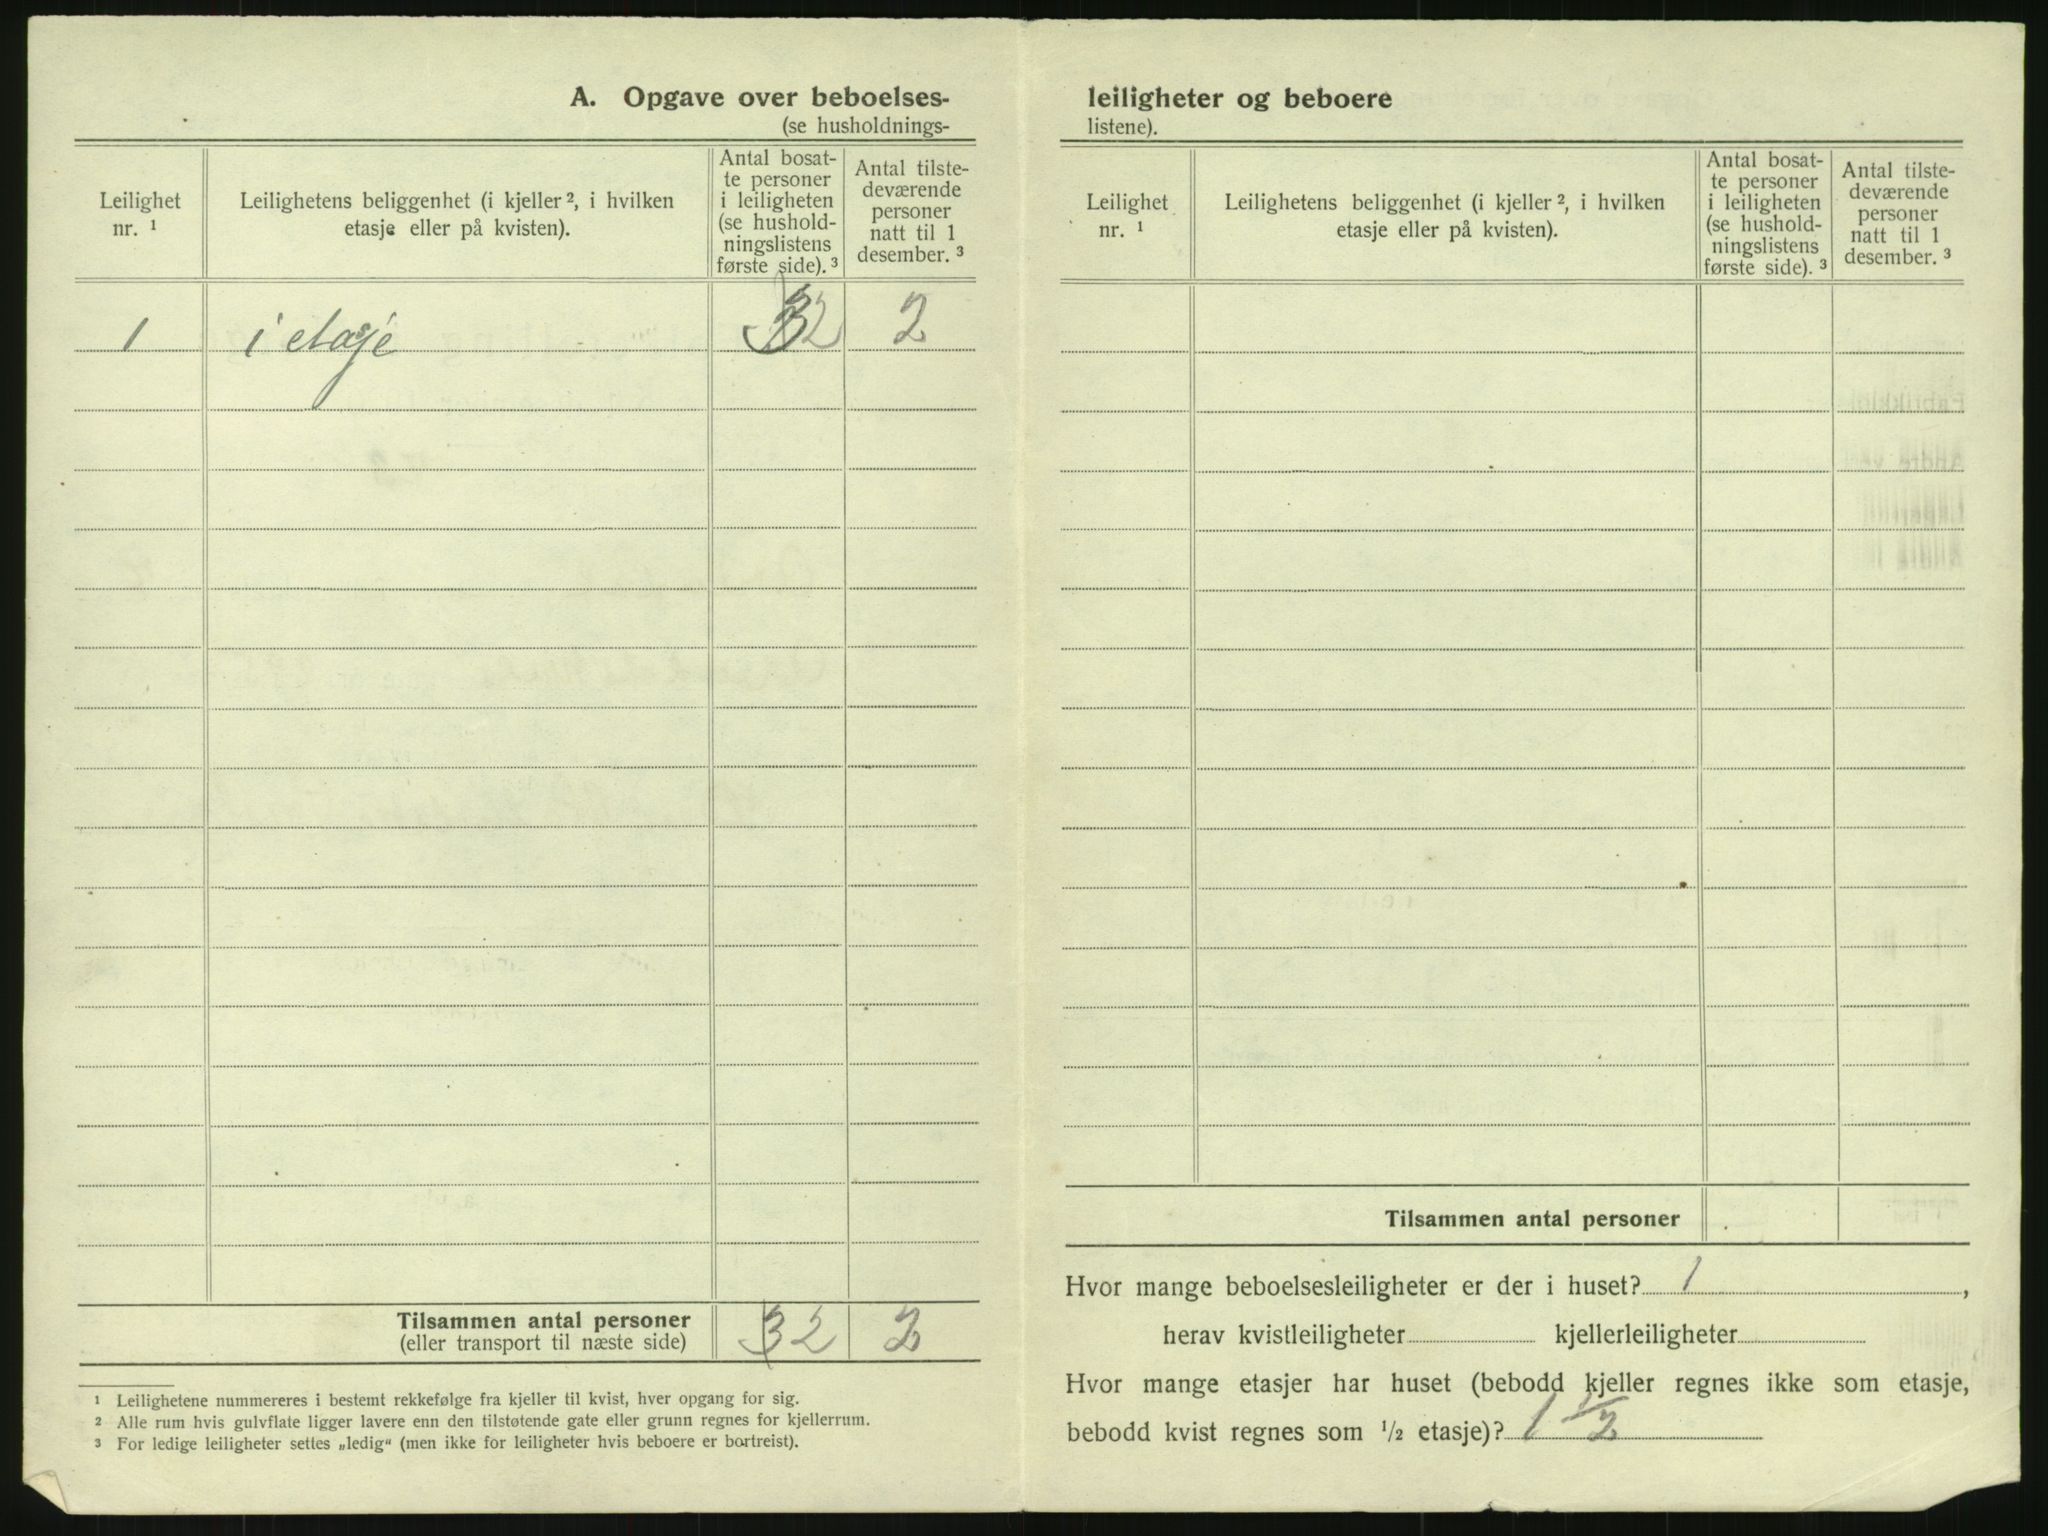 A. Opgave over beboelses-
(se husholdnings-
Leilighet
nr. ¹
Leilighetens beliggenhet (i kjeller ², i hvilken
etasje eller på kvisten).
Antal bosat-
te personer
i leiligheten
(se hushold-
ningslistens
første side). ³
Antal tilste-
deværende
personer
natt til 1
desember. ³
1 i etasje 3 2 2
Tilsammen antal personer 3 2 2
(eller transport til næste side)
¹ Leilighetene nummereres i bestemt rekkefølge fra kjeller til kvist, hver opgang for sig.
² Alle rum hvis gulvflate ligger lavere enn den tilstøtende gate eller grunn regnes for kjellerrum.
³ For ledige leiligheter settes „ledig“ (men ikke for leiligheter hvis beboere er bortreist).
leiligheter og beboere
listene).
Leilighet
nr. ¹
Leilighetens beliggenhet (i kjeller ², i hvilken
etasje eller på kvisten).
Antal bosat-
te personer
i leiligheten
(se hushold-
ningslistens
første side). ³
Antal tilste-
deværende
personer
natt til 1
desember. ³
Tilsammen antal personer
Hvor mange beboelsesleiligheter er der i huset? 1,
herav kvistleiligheter kjellerleiligheter
Hvor mange etasjer har huset (bebodd kjeller regnes ikke som etasje,
bebodd kvist regnes som ½ etasje)? 1 ½